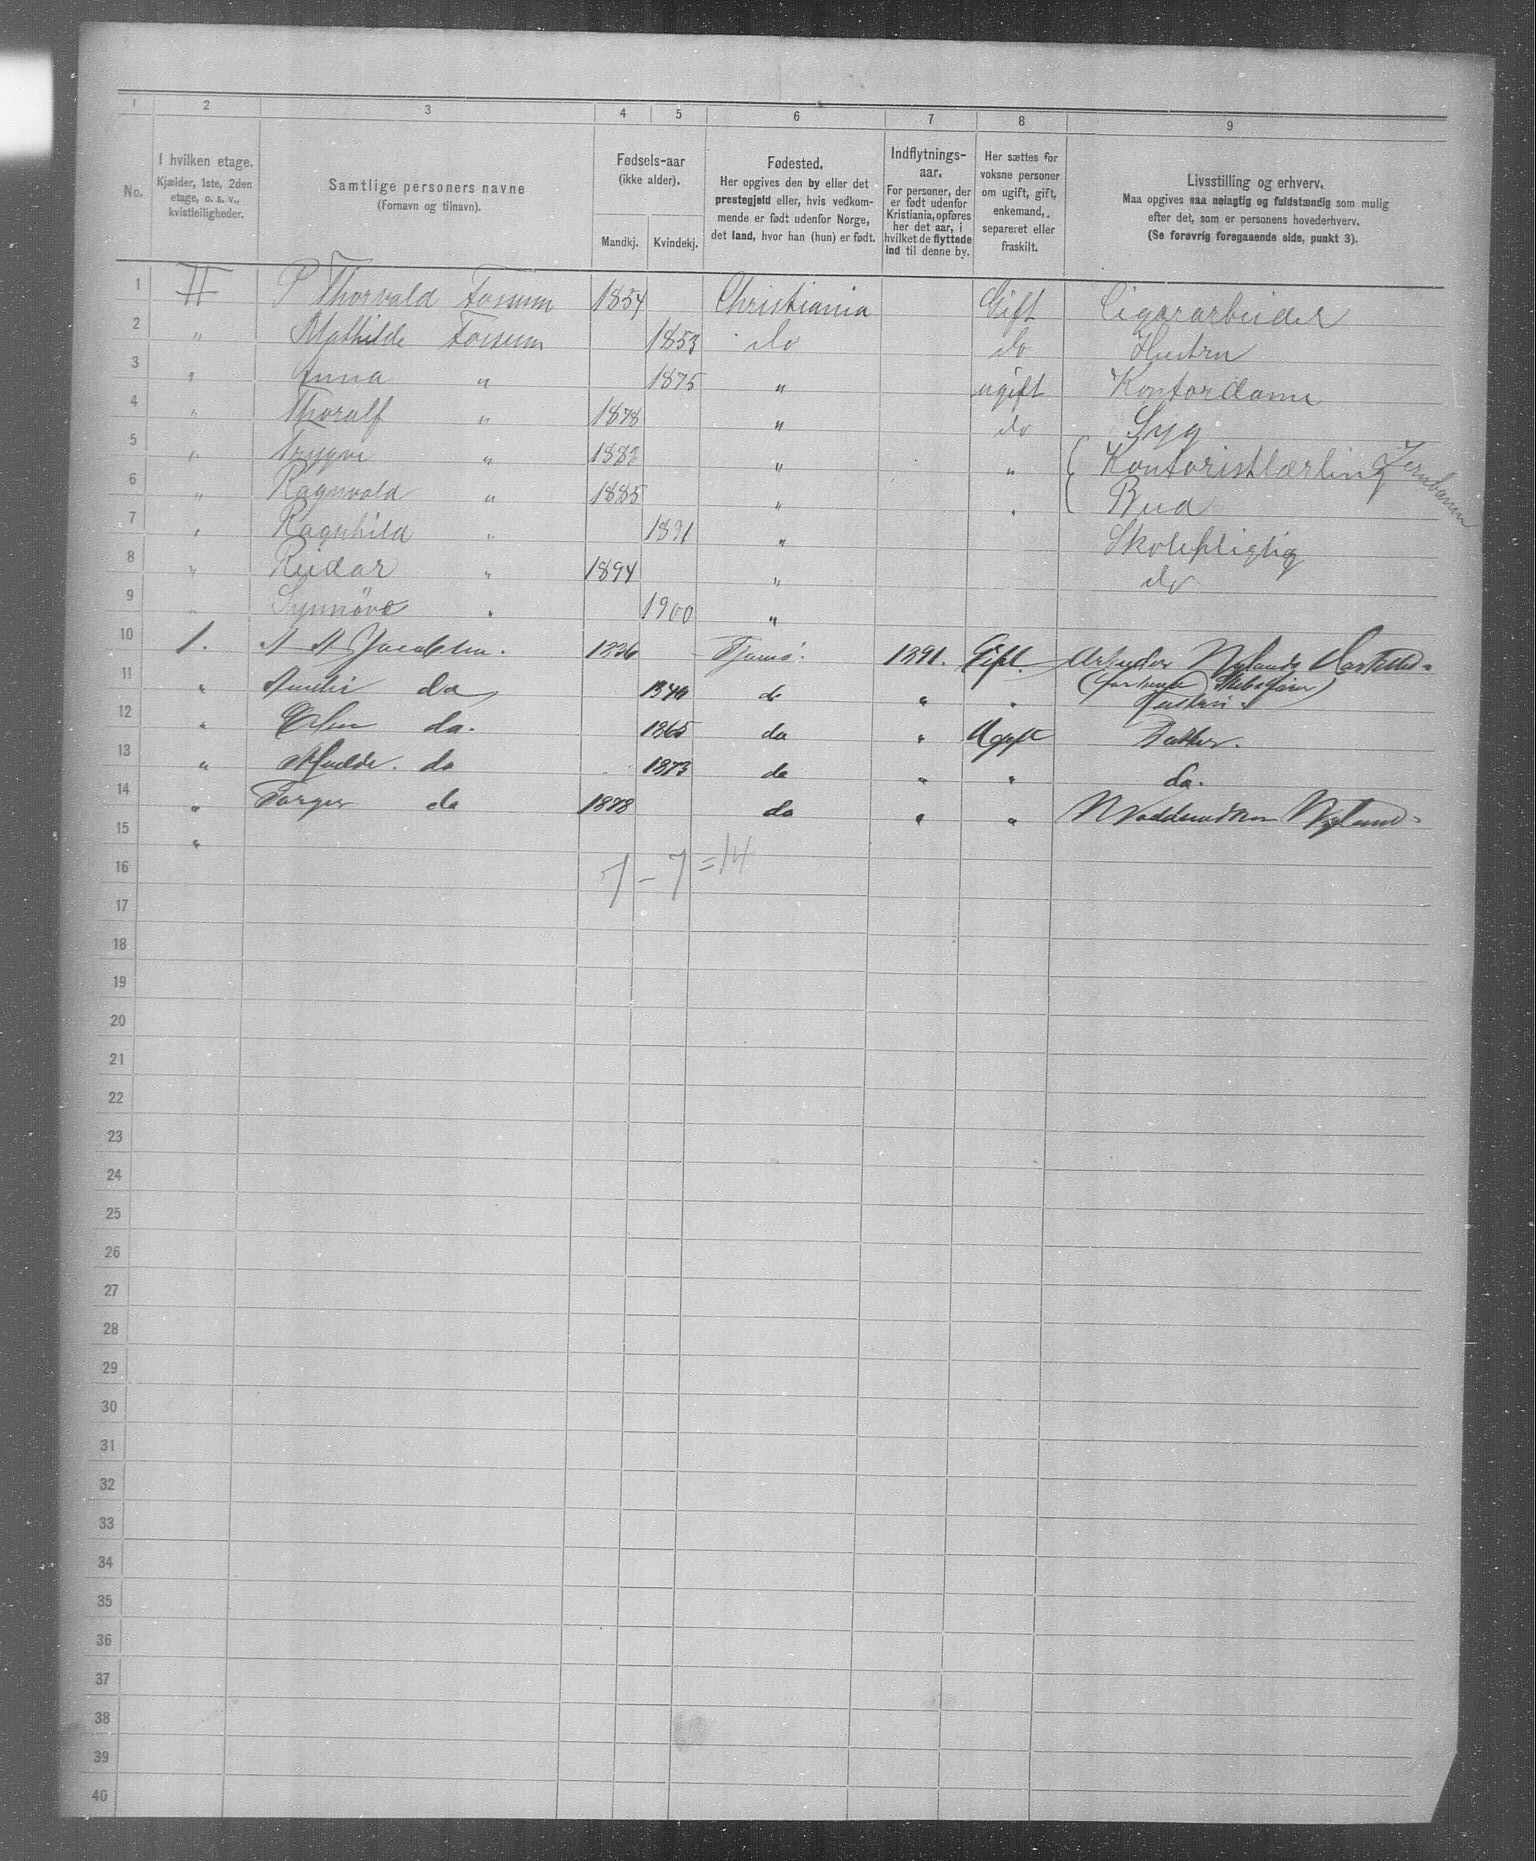 1 2 3 4 5 6 7 8 9
No.
I hvilken etage.
Kjælder, 1ste, 2den
etage, o. s. v.,
kvistleiligheder.
Samtlige personers navne
(Fornavn og tilnavn).
Fødsels-aar
(ikke alder).
Mandkj. Kvindekj.
Fødested.
Her opgives den by eller det
prestegjeld eller, hvis vedkom-
mende er født udenfor Norge,
det land, hvor han (hun) er født.
Indflytnings-
aar.
For personer, der
er født udenfor
Kristiania, opføres
her det aar, i
hvilket de flyttede
ind til denne by.
Her sættes for
voksne personer
om ugift, gift,
enkemand,
separeret eller
fraskilt.
Livsstilling og erhverv.
Maa opgives saa nøiagtig og fuldstændig som mulig
efter det, som er personens hovederhverv.
(Se forøvrig foregaaende side, punkt 3).
1 II P Thorvald Fossum 1854 Christiania Gift Cigararbeider
2 " Mathilde Fossum 1853 do do Hustru
3 " Anna " 1875 " ugift Kontordame
4 " Thoralf " 1878 " do Syg
5 " Trygve " 1883 " " Kontoristlærling Jernbanen
6 " Ragnvald " 1885 " " Bud
7 " Ragnhild " 1891 " Skolepligtig
8 " Reidar " 1894 " do
9 " Synnøve " 1900 "
10 1. A A Jacobsen. 1836 Tjømø. 1891. Gift Arbeider Nylands
11 " da 1840 do " "
12 " da. 1865 da " Ugift
13 " da 1873 da " " da.
14 " Torger da 1878 da " " Nyland
15 "
16 7 - 7 = 14
17
18
19
20
21
22
23
24
25
26
27
28
29
30
31
32
33
34
35
36
37
38
39
40